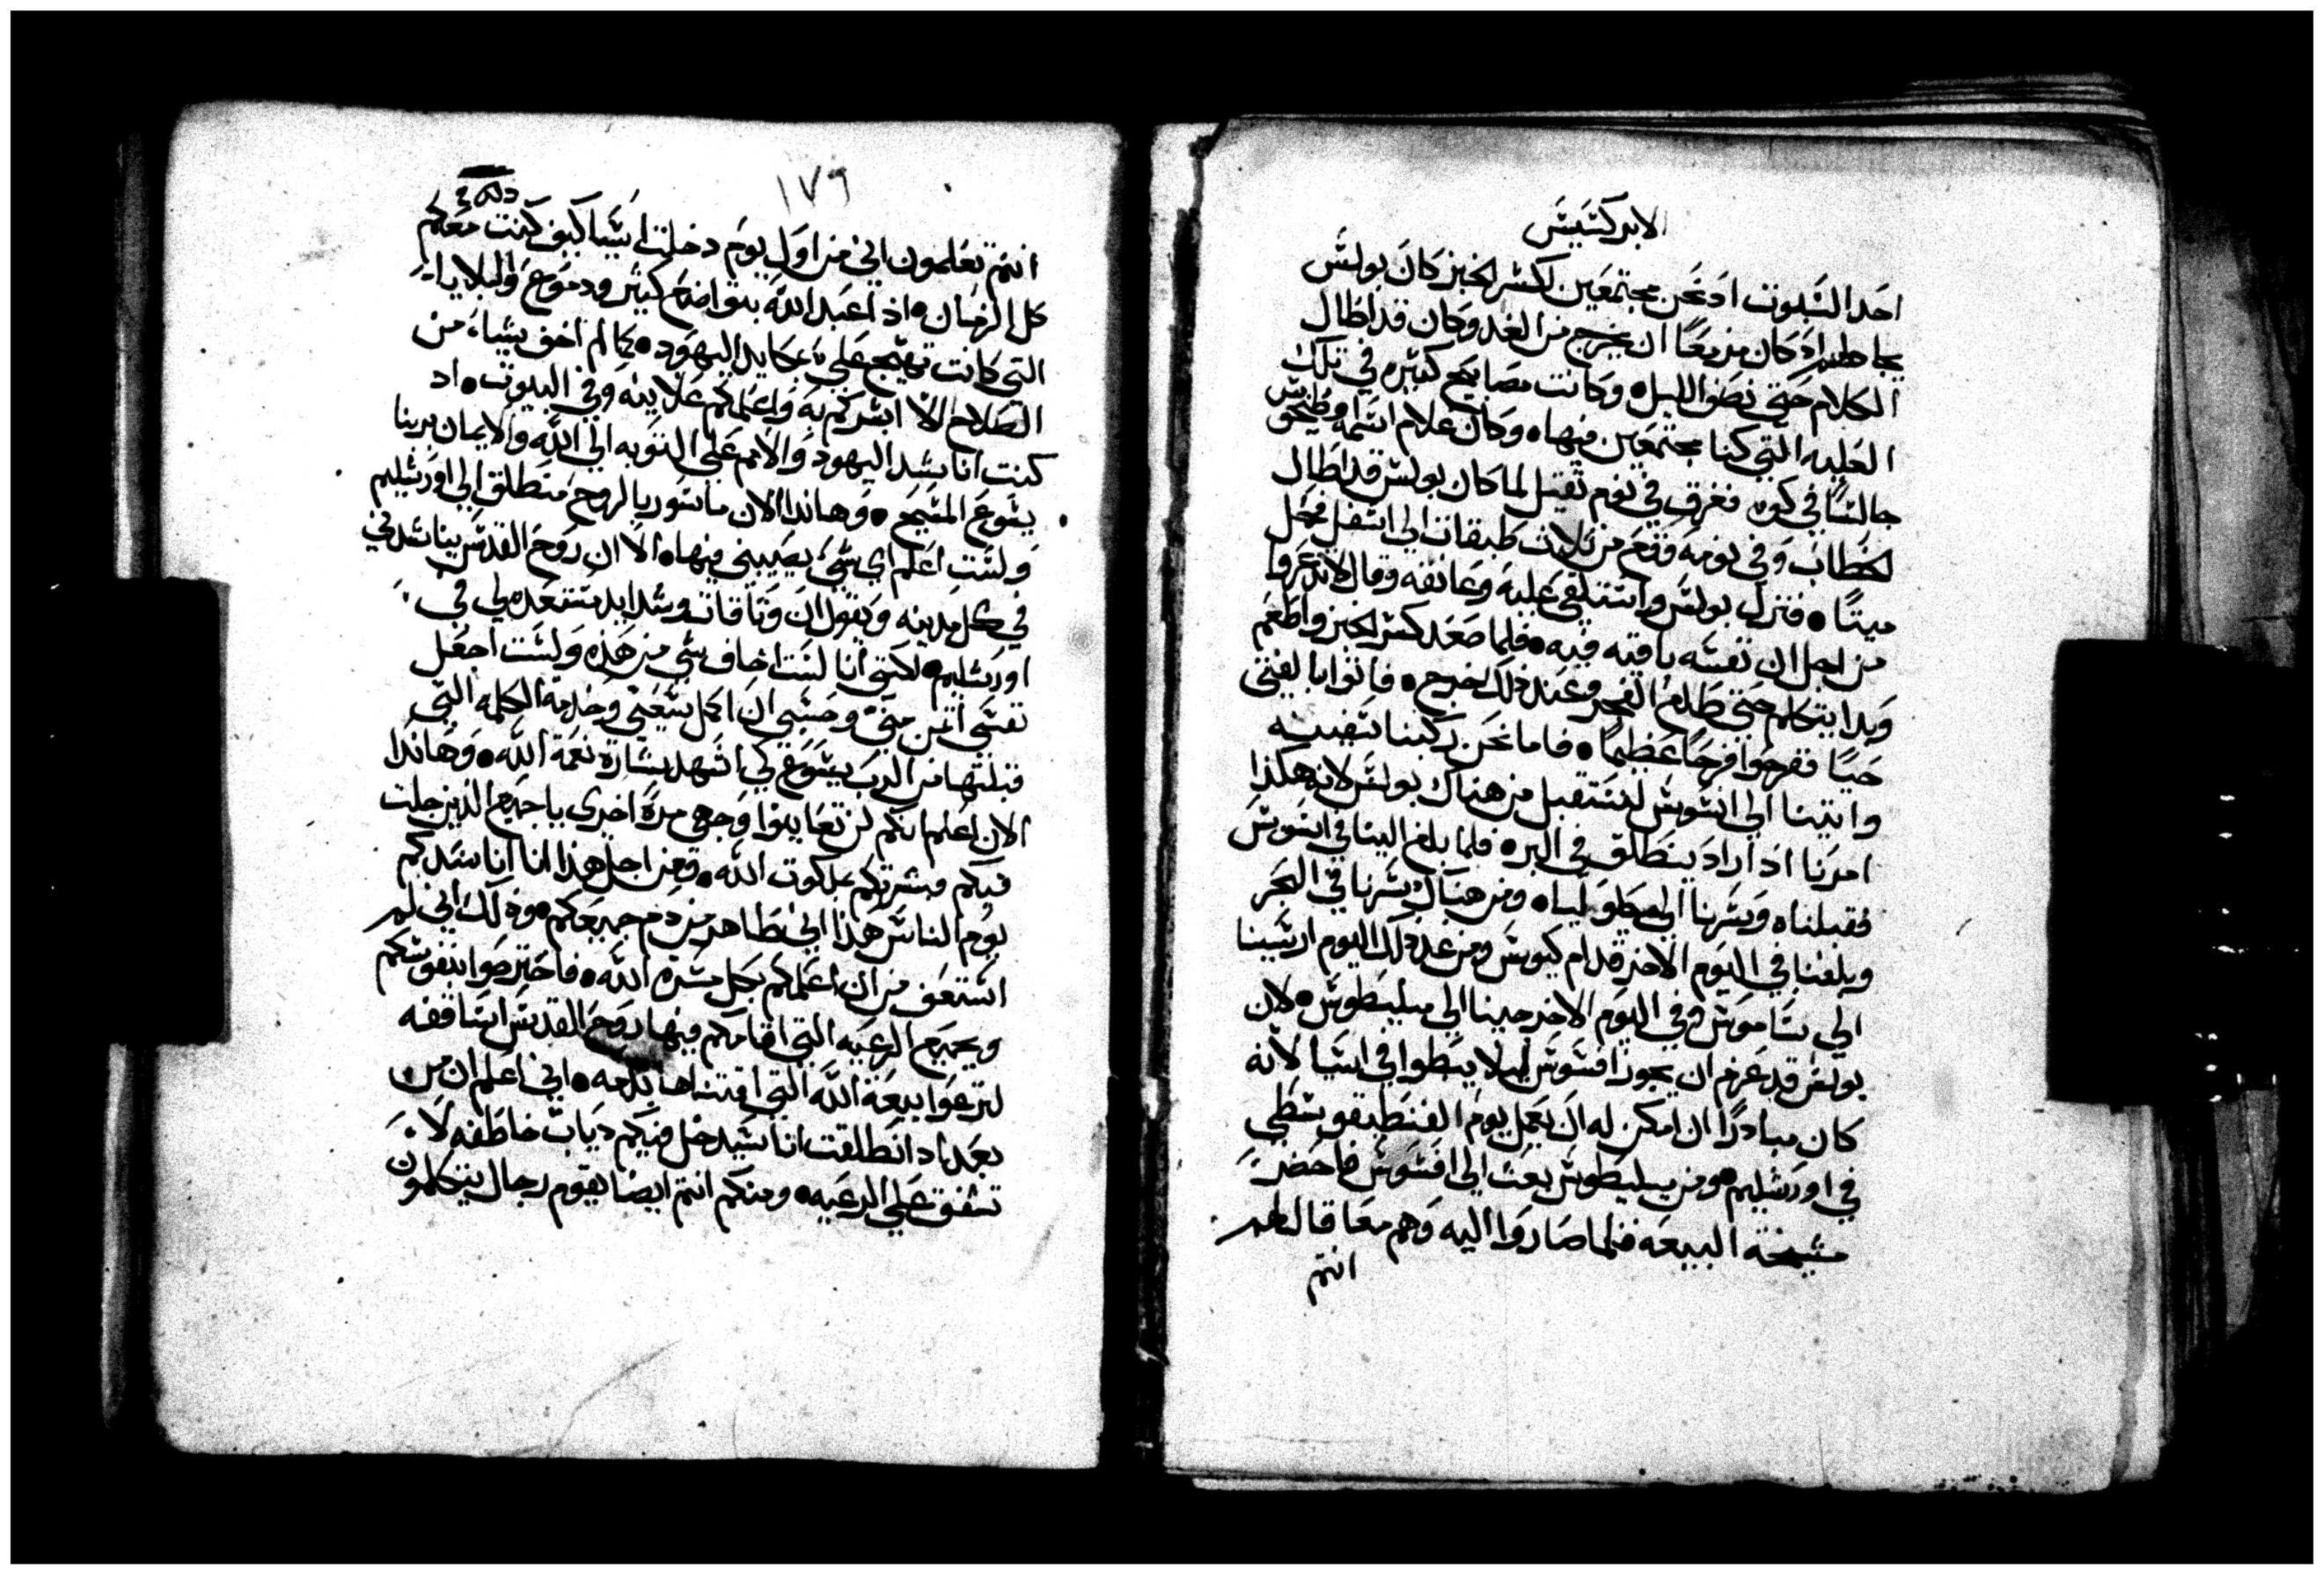 الابركسيس
احد السبوت اذ نحن مجتمعين لكسر الخبز كان بولس
يخاطبهم اذ كان مزمعًا ان يخرج من الغد وكان قد اطال
الكلام حتي نصف الليل، وكانت مصابيح كثيره في تلك
العليه التي كنا مجتمعين فيها، وكان غلام اسمه اوطيخس
جالسًا في كوه فغرق في نوم ثقيل لما كان بولس قد اطال
الخطاب وفي نومه وقع من ثلاث طبقات الي اسفل فحمل
ميتًا • فنزل بولس واستلقي عليه وعانقه وقال لا تذعروا
من اجل ان نفسه باقيه فيه • فلما صعد كسر الخبز واطعم
وبدا يتكلم حتي طلع الفجر وعند ذلك خرج • فاتوا بالفتي
حيًا ففرحوا فرحًا عظيمًا • فاما نحن ركبنا سفينه
واتينا الي اسوس لنستقبل من هناك بولس لانه هكذا
امرنا اذ اراد ينطلق في البر، فلما بلغ الينا في اسوس
فقبلناه وسرنا الي ميطوليا، ومن هناك سرنا في البحر
وبلغنا في اليوم الاخر قدام كيوس ومن غد ذلك اليوم ارسينا
الي ساموس وفي اليوم الاخر جينا الي ميليطوس • لان
بولس قد عزم ان يجوز افسوس ليلا يبطوا في اسيا لانه
كان مبادرًا ان امكن له ان يعمل يوم الفنطيقوسطي
في اورشليم • ومن ميليطوس بعث الي افسوس فاحضر
مشيخة البيعه فلما صاروا اليه وهم معا قال لهم
انتم
١٧٩
انتم تعلمون اني من اول يوم دخلت اسيا كيف كنت معكم
كل الزمان • اذ اعبد الله بتواضع كثير ودموع والبلايا
التي كانت تهيج علي بمكايد اليهود • كما لم اخف شيا من
الصلاح الا ابشركم به واعلمكم علانيه وفي البيوت • اذ
كنت اناشد اليهود والامم علي التوبه الي الله والايمان بربنا
يسوع المسيح • وهانذا الان ماسور بالروح منطلق الي اورشليم
ولست اعلم اي شي يصيبني فيها • الا ان روح القدس يناشدني
في كل مدينه ويقول ان وثاقات وشدايد مستعده لي في
اورشليم • لكني انا لست اخاف شي من هذه ولست اجعل
نفسي اثمن مني وحسبي ان اكمل سعيي وخدمة الكلمه التي
قبلتها من الرب يسوع لكي اشهد بشارة نعمة الله • وهانذا
الان اعلم انكم لن تعاينوا وجهي مرة اخري يا جميع الذين جلت
فيكم فبشرتكم بملكوت الله • فمن اجل هذا انا اناشدكم
يوم الناس هذا اني طاهر من دم جميعكم • وذلك اني لم
استعف من ان اعلمكم بكل مسرة الله • فاحترصوا بنفوسكم
وبجميع الرعيه التي اقامكم فيها روح القدس اساقفه
لترعوا بيعة الله التي اقتناها بدمه • اني اعلم ان من
بعد اذ انطلقت انا سيدخل فيكم دياب خاطفه لا
تشفق علي الرعيه • ومنكم انتم ايضا يقوم رجال يتكلمون